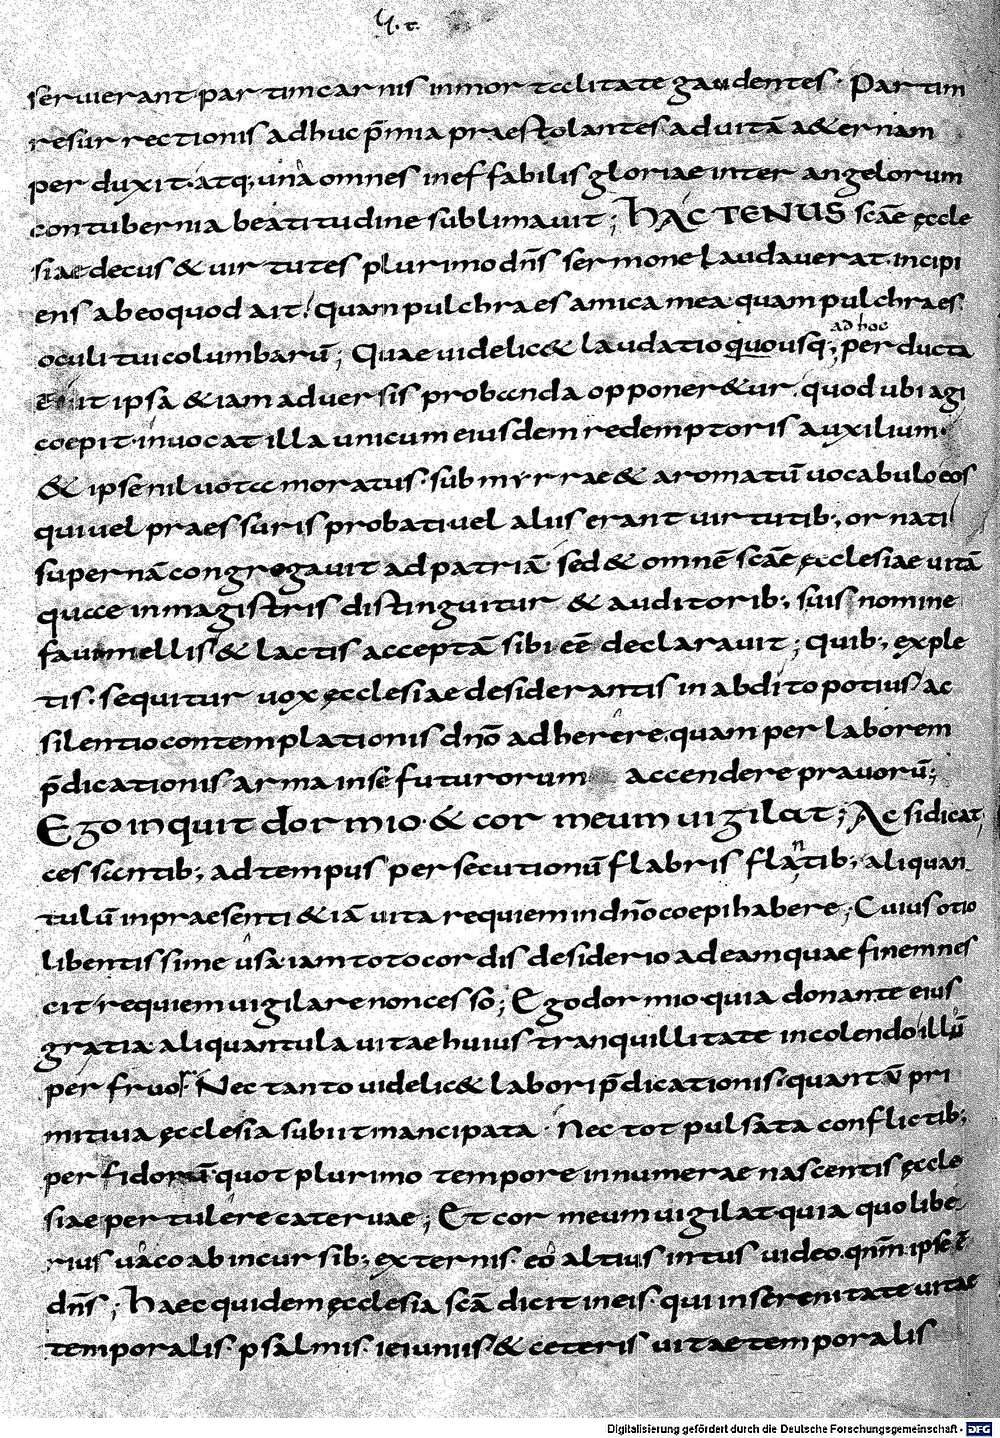 seruierant partim carnis inmortalitate gaudentes· Partim
resurrectionis adhuc p̄mia praestolantes ad uitā aeternam
perduxit· atq; una omnes ineffabilis gloriae inter angelorum
contubernia beatitudine sublimauit; HACTENUS scāe ęccle
siae decus & uirtutes plurimo dn̄s sermone laudauerat· incipi
ens ab eo quod ait· Quam pulchra es amica mea quam pulchra es
oculi tui columbarū; Quae uidelic& laudatio quousq; per ducta
ad hoc
it ipsa & iam aduersis probanda opponer&ur· quod ubi agi
coepit· inuocat illa unicum eiusdem redemptoris auxilium·
& ipse nil uota moratus· sub myrrae & aromatū uocabulo eos
qui uel praessuris probati uel aliis erant uirtutib; ornati
supernā congregauit ad patriā· sed & omnē scāe ęcclesiae uitā
quae in magistris distinguitur & auditorib; suis nomine
faui mellis & lactis acceptā sibi eē declarauit; quib; exple
tis· sequitur uox ęcclesiae desiderantis in abdito potius ac
silentio contemplationis dn̄o adherere quam per laborem
p̄dicationis arma in se futurorum accendere prauorū;
Ego inquit dormio & cor meum uigilat; Ac si dicat
cessantib; ad tempus persecutionū flabris flantib; aliquan
tulū in praesenti & iā uita requiem in dn̄o coepi habere; Cuius otio
libentissime usa iam toto cordis desiderio ad eam quae finem nes
cit requiem uigilare non cesso; Ego dormio quia donante eius
gratia aliquantula uitae huius tranquillitate in colendo illū
perfruor Nec tanto uidelic& labori p̄dicationis· quantū pri
mitiua ęcclesia subiit mancipata· Nec tot pulsata conflictib;
perfidorū quot plurimo tempore innumerae nascentis ęccle
siae pertulere cateruae; Et cor meum uigilat quia quo libe
rius uaco ab incursib; externis· eo altius intus uideo qnm̄ ipse ē
dn̄s; Haec quidem ęcclesia scā dicit in eis· qui in serenitate uitae
temporalis· psalmis· ieiuniis & ceteris uitae temporalis
Digitalisierung gefördert durch die Deutsche Forschungsgemeinschaft - DFG